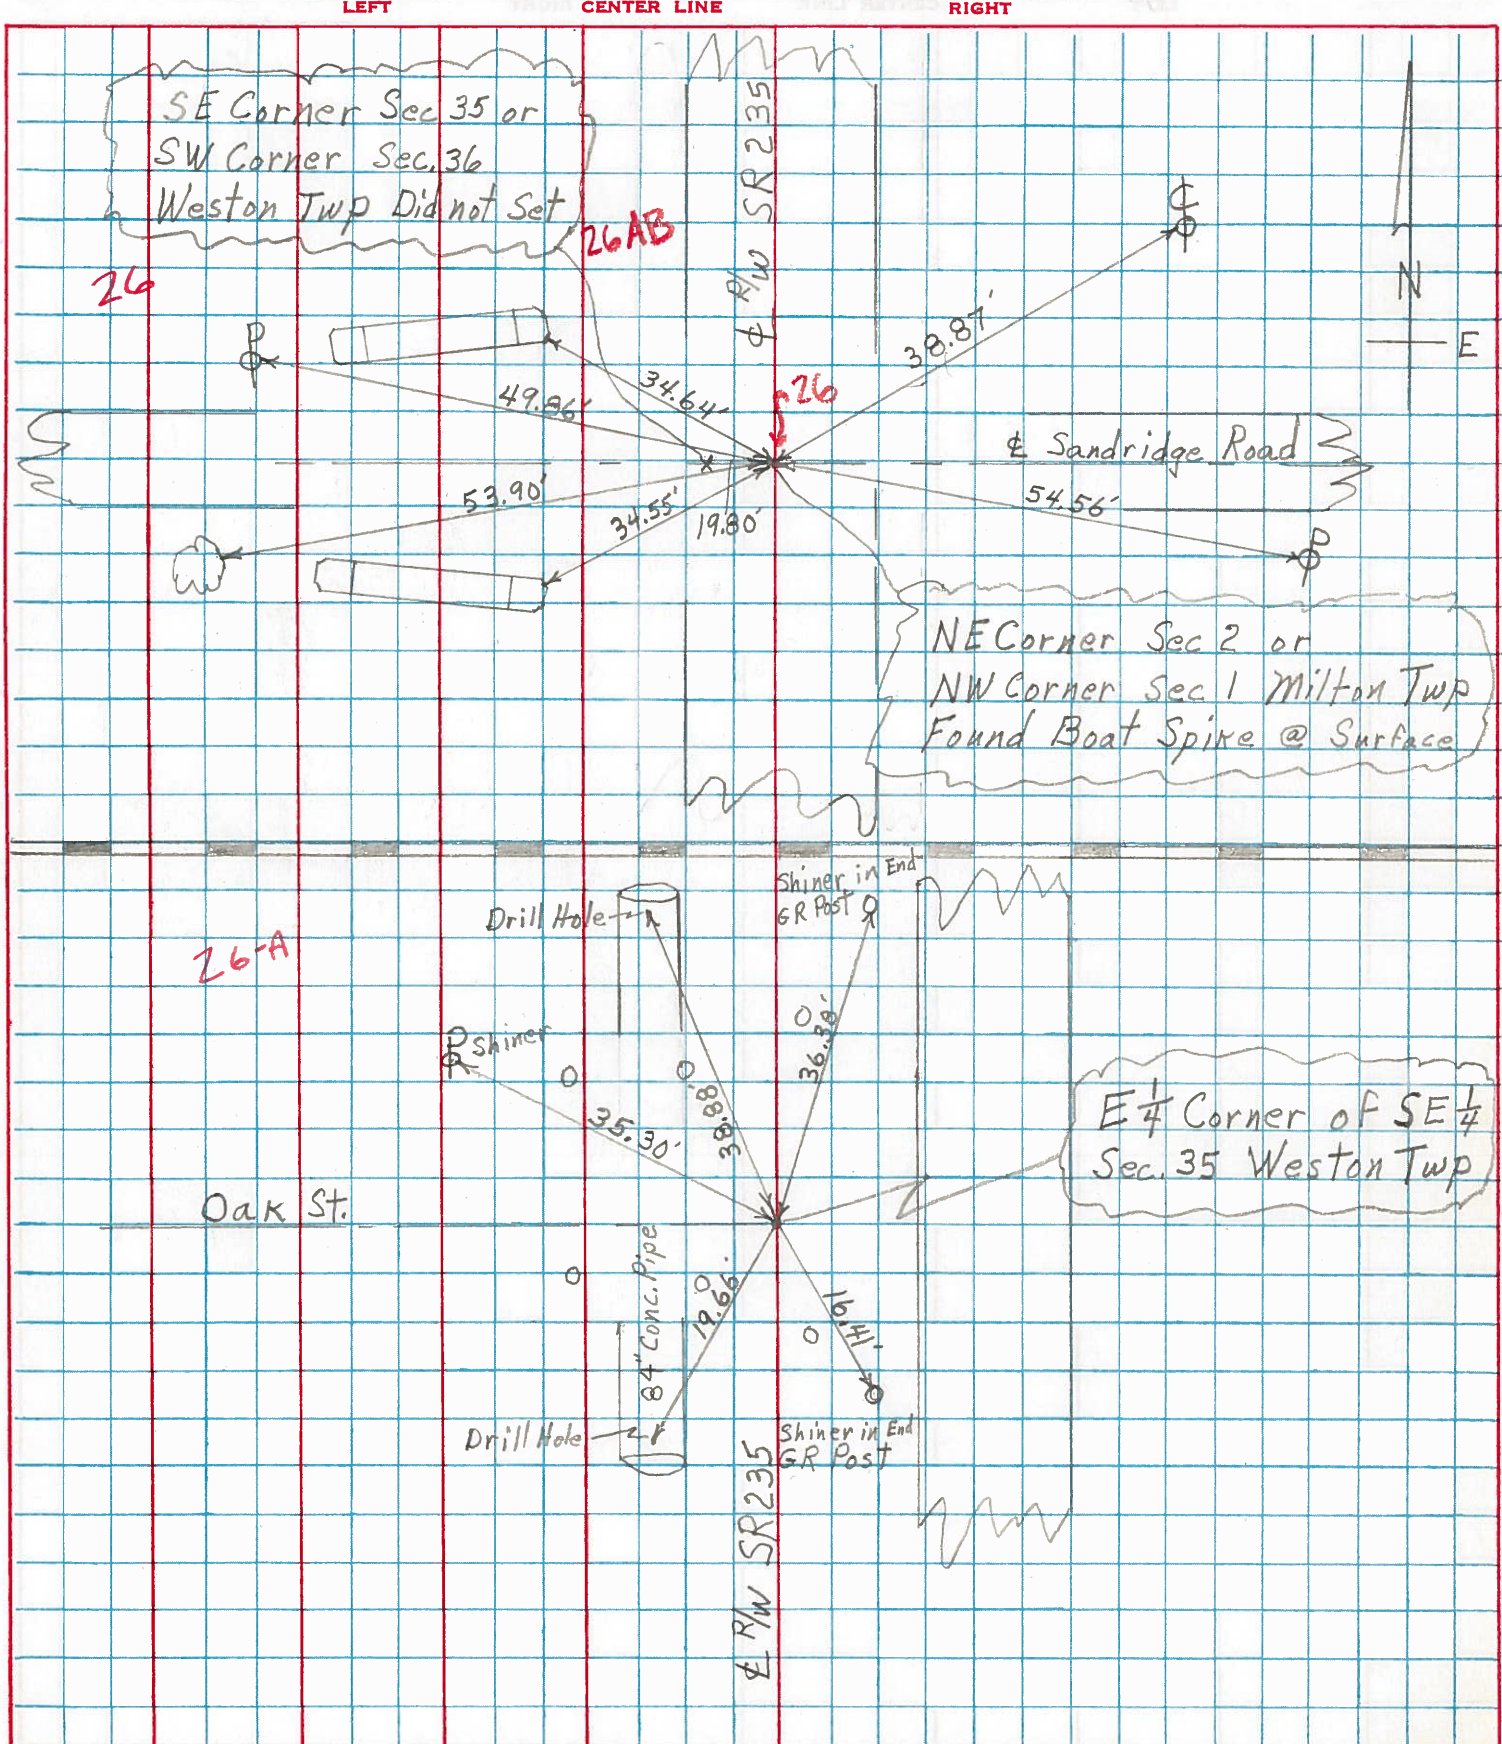 LEFT CENTER LINE RIGHT
SE Corner Sec 35 or
SW Corner Sec. 36
Weston Twp Did not Set
26AB
26
℄ R/W SR 235
℄
P
38.87'
N
E
34.64'
49.86'
26
℄ Sandridge Road
53.90'
34.55'
19.80'
54.56'
P
NE Corner Sec 2 or
NW Corner Sec 1 Milton Twp
Found Boat Spike @ Surface
26-A
Drill Hole
Shiner in End
GR Post
P Shiner
36.38'
38.88'
35.30'
E 1/4 Corner of SE 1/4
Sec. 35 Weston Twp
Oak St.
84" Conc. Pipe
19.66'
16.41'
Drill Hole
Shiner in End
GR Post
℄ R/W SR 235